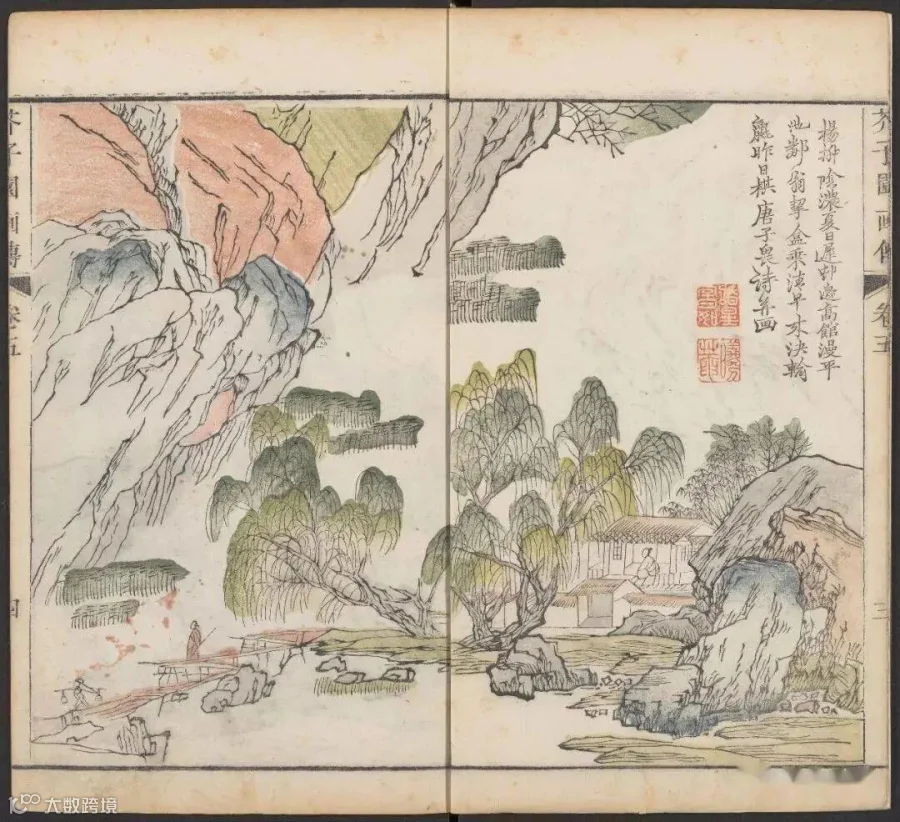 芥子園画傳 卷五 三
楊柳陰濃夏日遲邨邊高館漫平
池鄰翁挈盒乘清早来決輸
贏昨日棋唐子畏詩并画
芥子園画傳 卷五 四
大数跨境